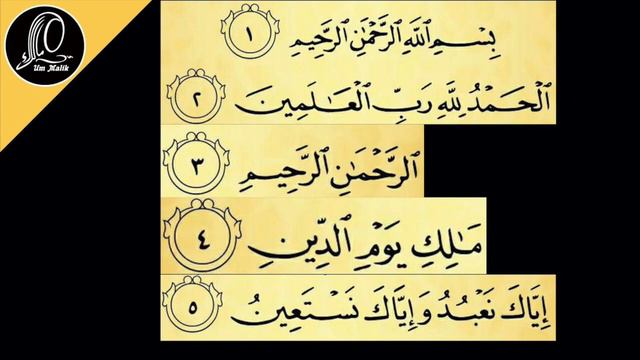 Um Malik
بِسْمِ ٱللَّهِ ٱلرَّحْمَٰنِ ٱلرَّحِيمِ ١
ٱلْحَمْدُ لِلَّهِ رَبِّ ٱلْعَٰلَمِينَ ٢
ٱلرَّحْمَٰنِ ٱلرَّحِيمِ ٣
مَٰلِكِ يَوْمِ ٱلدِّينِ ٤
إِيَّاكَ نَعْبُدُ وَإِيَّاكَ نَسْتَعِينُ ٥